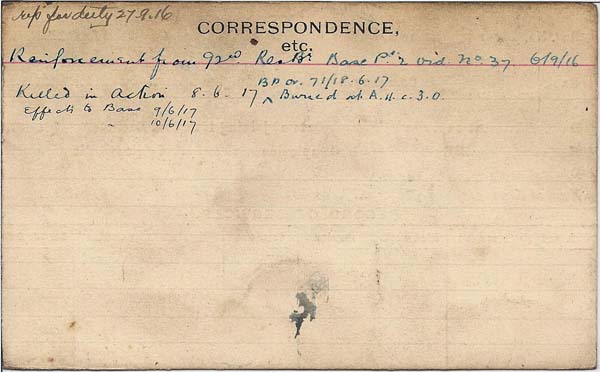 rep for duty 27.9.16
CORRESPONDENCE,
etc.
Reinforcement from 92nd Res. Bn Base Pt 2 Ord. No. 37 6/9/16
BPO. 71/18.6.17
Killed in action 8.6.17 ^ Buried at A.H.c.3.0.
Effects to Base 9/6/17
" 10/6/17